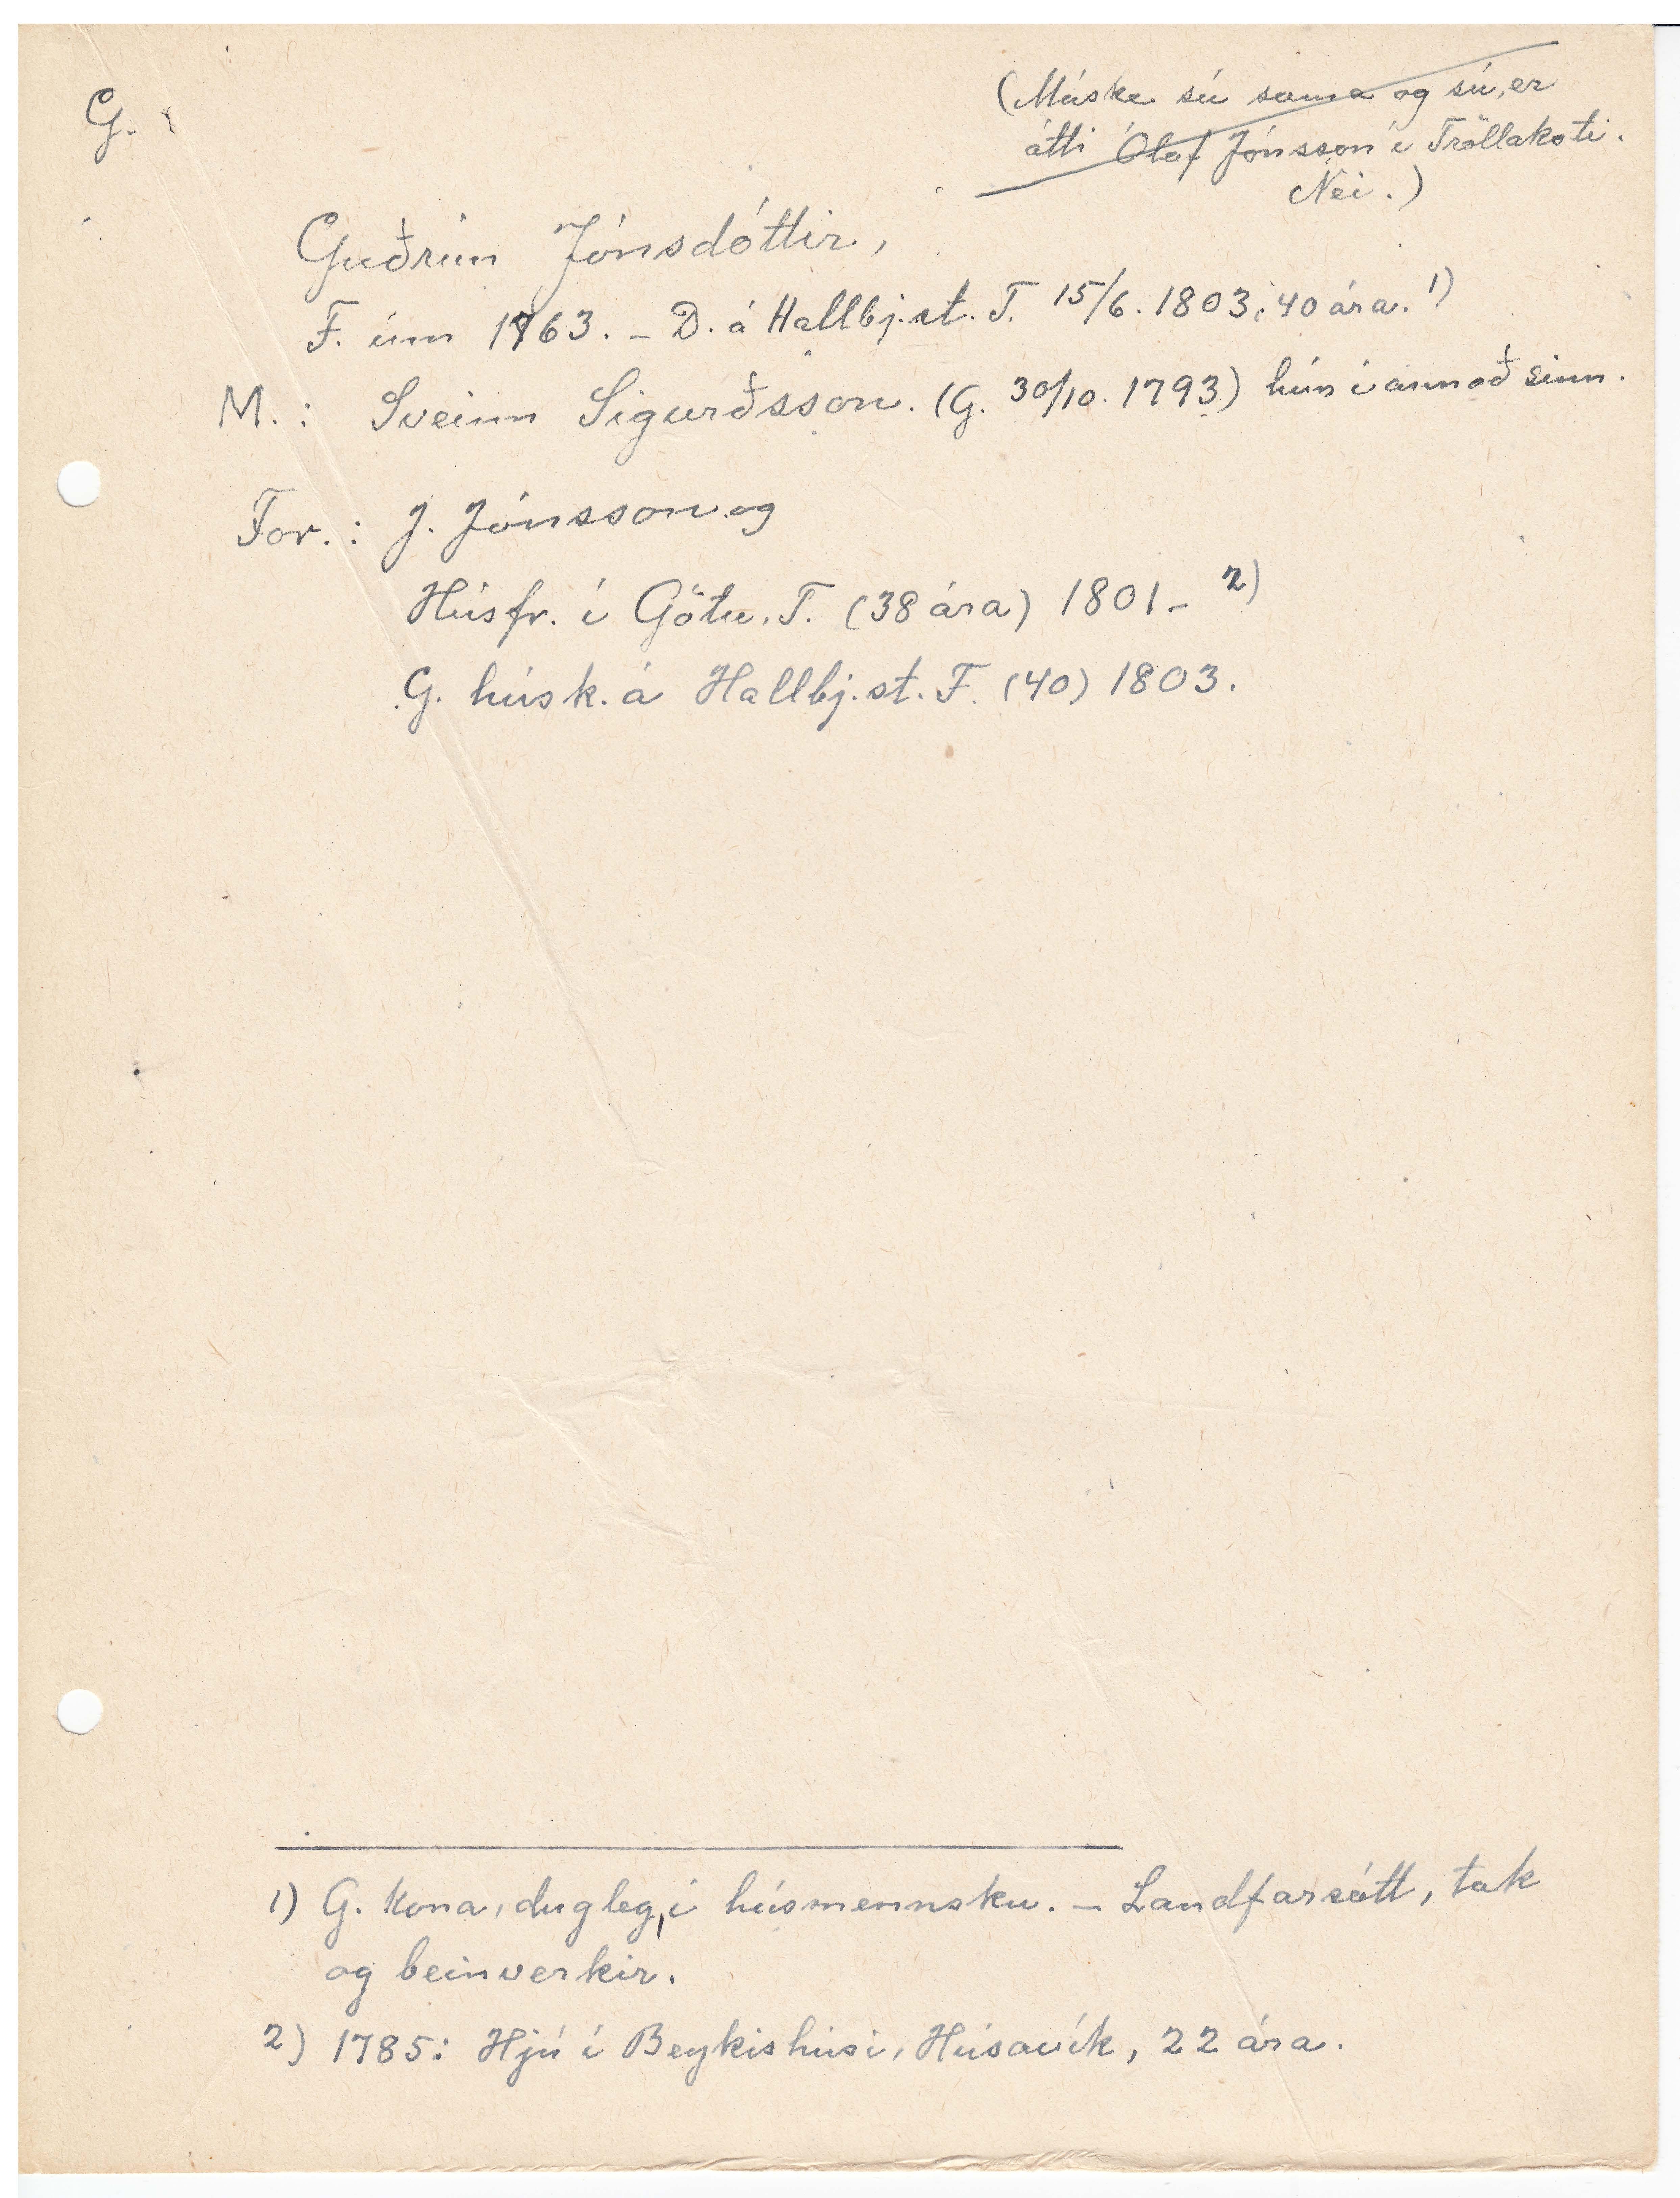 G.
(Máske sú sama og sú, er
átti Ólaf Jónsson í Tröllakoti.
Nei.)
Guðrún Jónsdóttir,
F. um 1763. – D. á Hallbj.st. T. 15/6. 1803, 40 ára. 1)
M.: Sveinn Sigurðsson. (G. 30/10. 1793) hún í annað sinn.
For.: J. Jónsson og
Húsfr. í Götu. T. (38 ára) 1801 – 2)
G. húsk. á Hallbj.st. T. (40) 1803.
1) G. kona, dugleg, í húsmennsku. – Landfarsótt, tak
og beinverkir.
2) 1785: Hjú í Beykishúsi, Húsavík, 22 ára.